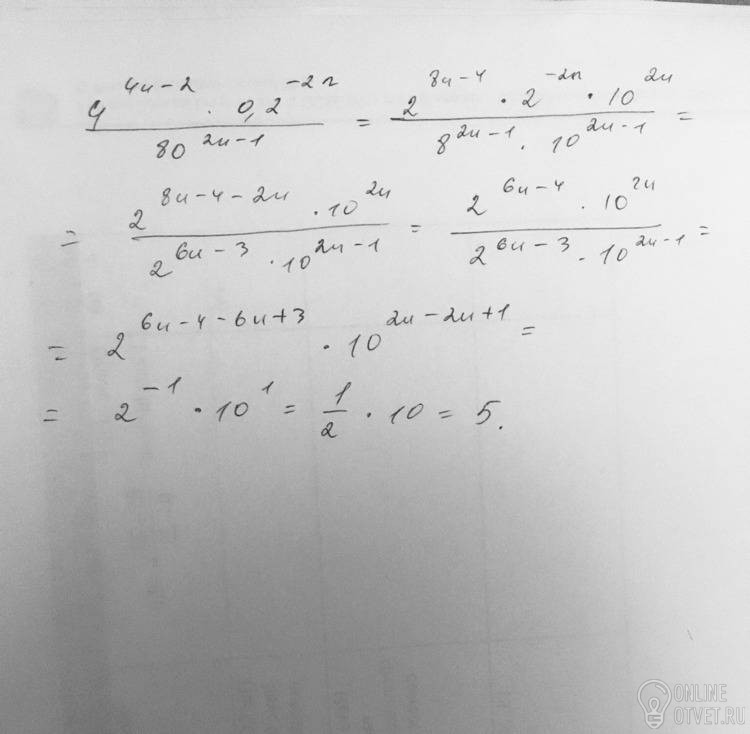 4^{4n-2} · 0,2^{-2n} / 80^{2n-1} = 2^{8n-4} · 2^{-2n} · 10^{2n} / 8^{2n-1} · 10^{2n-1} =
= 2^{8n-4-2n} · 10^{2n} / 2^{6n-3} · 10^{2n-1} = 2^{6n-4} · 10^{2n} / 2^{6n-3} · 10^{2n-1} =
= 2^{6n-4-6n+3} · 10^{2n-2n+1} =
= 2^{-1} · 10^{1} = 1/2 · 10 = 5.
ONLINE
OTVET.RU